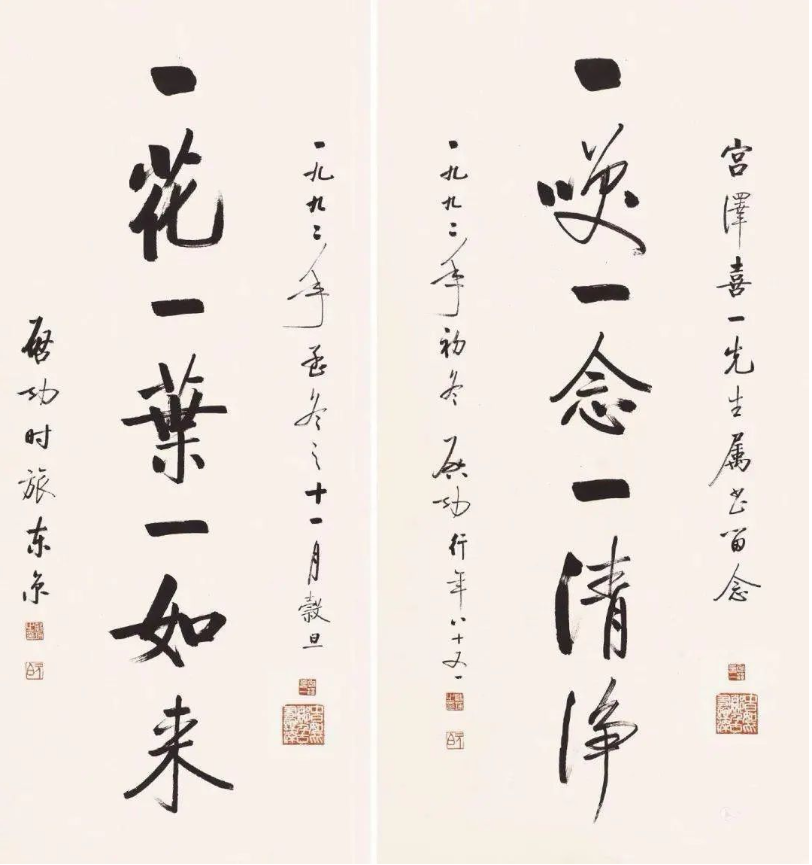 宫澤喜一先生属书留念
一咲一念一清淨
一九九二年初冬 啟功行年八十又一
一九九二年孟冬之十一月穀旦
一花一葉一如来
啟功时旅东京